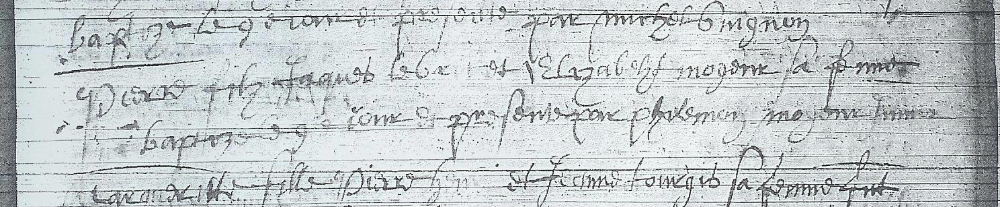 baptize le 9e jour et presente par michel Guignon
Pierre filz Jaques lebr et Elizabeht mogeur sa femme
baptize le 9e jour et presente par philemon mogeur
Margueritte fille Pierre et Jeanne tourgis sa femme fut